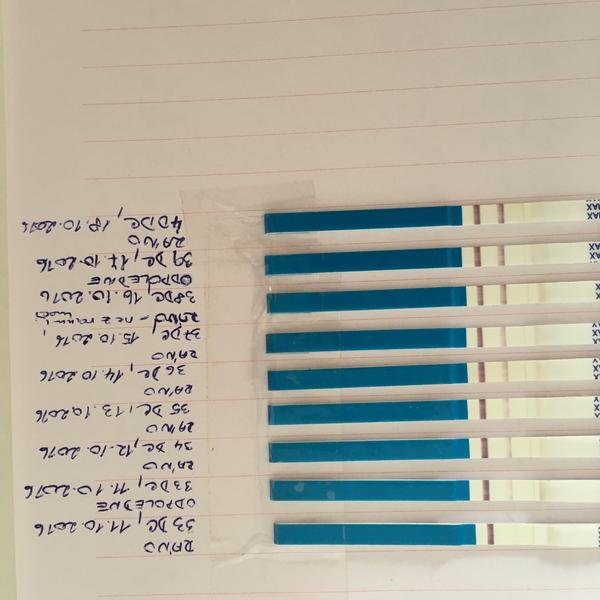 RÁNO
33 DC, 11.10.2016
ODPOLEDNE
33 DC, 11.10.2016
RÁNO
34 DC, 12.10.2016
RÁNO
35 DC, 13.10.2016
RÁNO
36 DC, 14.10.2016
RÁNO
37 DC, 15.10.2016,
RÁNO -
38 DC, 16.10.2016
ODPOLEDNE
39 DC, 17.10.2016
RÁNO
40 DC, 18.10.2016